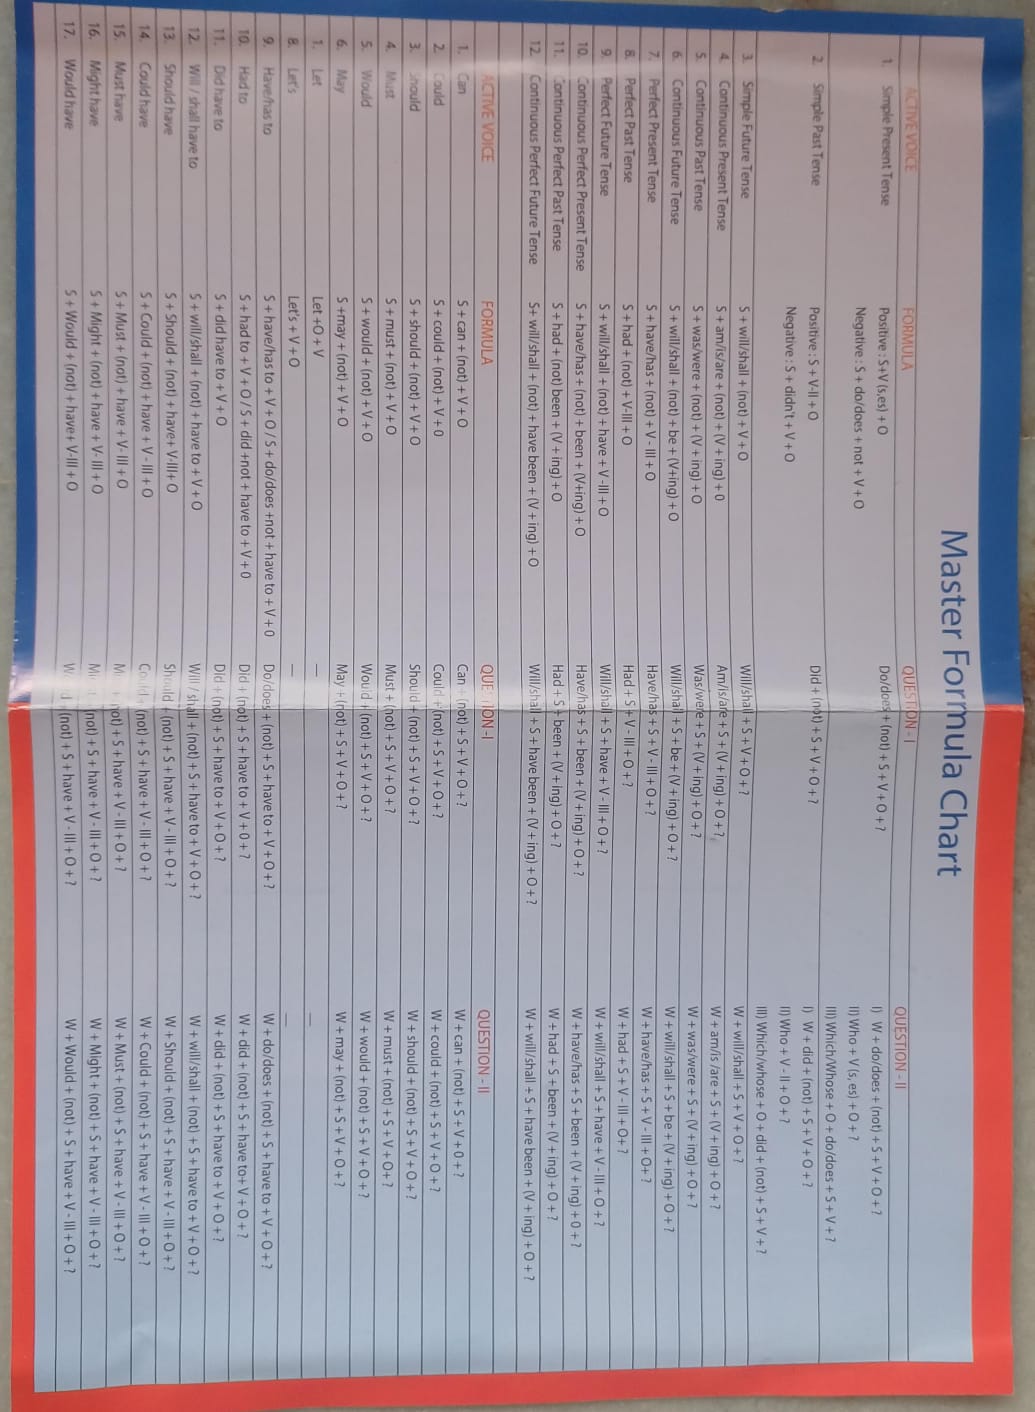 Master Formula Chart
ACTIVE VOICE FORMULA QUESTION - I QUESTION - II
1. Simple Present Tense Positive : S+V (s,es) + O Do/does + (not) + S + V + O + ? I) W + do/does + (not) + S + V + O + ?
Negative : S + do/does + not + V + O II) Who + V (s, es) + O + ?
III) Which/Whose + O + do/does + S + V + ?
2. Simple Past Tense Positive : S + V-II + O Did + (not) + S + V + O + ? I) W + did + (not) + S + V + O + ?
Negative : S + didn't + V + O II) Who + V - II + O + ?
III) Which/whose + O + did + (not) + S + V + ?
3. Simple Future Tense S + will/shall + (not) + V + O Will/shall + S + V + O + ? W + will/shall + S + V + O + ?
4. Continuous Present Tense S + am/is/are + (not) + (V + ing) + 0 Am/is/are + S + (V + ing) + O + ? W + am/is /are + S + (V + ing) + O + ?
5. Continuous Past Tense S + was/were + (not) + (V + ing) + O Was/were + S + (V + ing) + O + ? W + was/were + S + (V + ing) + O + ?
6. Continuous Future Tense S + will/shall + (not) + be + (V+ing) + O Will/shall + S + be + (V + ing) + O + ? W + will/shall + S + be + (V + ing) + O + ?
7. Perfect Present Tense S + have/has + (not) + V - III + O Have/has + S + V - III + O + ? W + have/has + S + V - III + O+ ?
8. Perfect Past Tense S + had + (not) + V-III + O Had + S + V - III + O + ? W + had + S + V - III + O+ ?
9. Perfect Future Tense S + will/shall + (not) + have + V -III + O Will/shall + S + have + V - III + O + ? W + will/shall + S + have + V - III + O + ?
10. Continuous Perfect Present Tense S + have/has + (not) + been + (V+ing) + O Have/has + S + been + (V + ing) + O + ? W + have/has + S + been + (V + ing) + 0 + ?
11. Continuous Perfect Past Tense S + had + (not) been + (V + ing) + O Had + S + been + (V + ing) + O + ? W + had + S + been + (V + ing) + O + ?
12. Continuous Perfect Future Tense S+ will/shall + (not) + have been + (V + ing) + O Will/shall + S + have been + (V + ing) + O + ? W + will/shall + S + have been + (V + ing) + O + ?
ACTIVE VOICE FORMULA QUESTION-I QUESTION - II
1. Can S + can + (not) + V + O Can + (not) + S + V + O + ? W + can + (not) + S + V + 0 + ?
2. Could S + could + (not) + V + 0 Could + (not) + S + V + O + ? W + could + (not) + S + V + O + ?
3. Should S + should + (not) + V + O Should + (not) + S + V + O + ? W + should + (not) + S + V + O + ?
4. Must S + must + (not) + V + O Must + (not) + S + V + O + ? W + must + (not) + S + V + O+ ?
5. Would S + would + (not) + V + O Would + (not) + S + V + O + ? W + would + (not) + S + V + O + ?
6. May S +may + (not) + V + O May + (not) + S + V + O + ? W + may + (not) + S + V + O + ?
1. Let Let +O + V — —
8. Let's Let's + V + O — —
9. Have/has to S + have/has to + V + O / S + do/does +not + have to + V + 0 Do/does + (not) + S + have to + V + O + ? W + do/does + (not) + S + have to + V + O + ?
10. Had to S + had to + V + O / S + did +not + have to + V + 0 Did + (not) + S + have to + V + 0 + ? W + did + (not) + S + have to+ V + O + ?
11. Did have to S + did have to + V + O Did + (not) + S + have to + V + O + ? W + did + (not) + S + have to + V + O + ?
12. Will / shall have to S + will/shall + (not) + have to + V + O Will / shall + (not) + S + have to + V + O + ? W + will/shall + (not) + S + have to + V + O + ?
13. Should have S + Should + (not) + have+ V-III+ O Should + (not) + S + have + V - III + O + ? W + Should + (not) + S + have + V - III + O + ?
14. Could have S + Could + (not) + have + V - III + O Could + (not) + S + have + V - III + O + ? W + Could + (not) + S + have + V - III + O + ?
15. Must have S + Must + (not) + have + V - III + O + (not) + S + have + V - III + O + ? W + Must + (not) + S + have + V - III + O + ?
16. Might have S + Might + (not) + have + V - III + O (not) + S + have + V - III + O + ? W + Might + (not) + S + have + V - III + O + ?
17. Would have S + Would + (not) + have+ V-III + O (not) + S + have + V - III + O + ? W + Would + (not) + S + have + V - III + O + ?